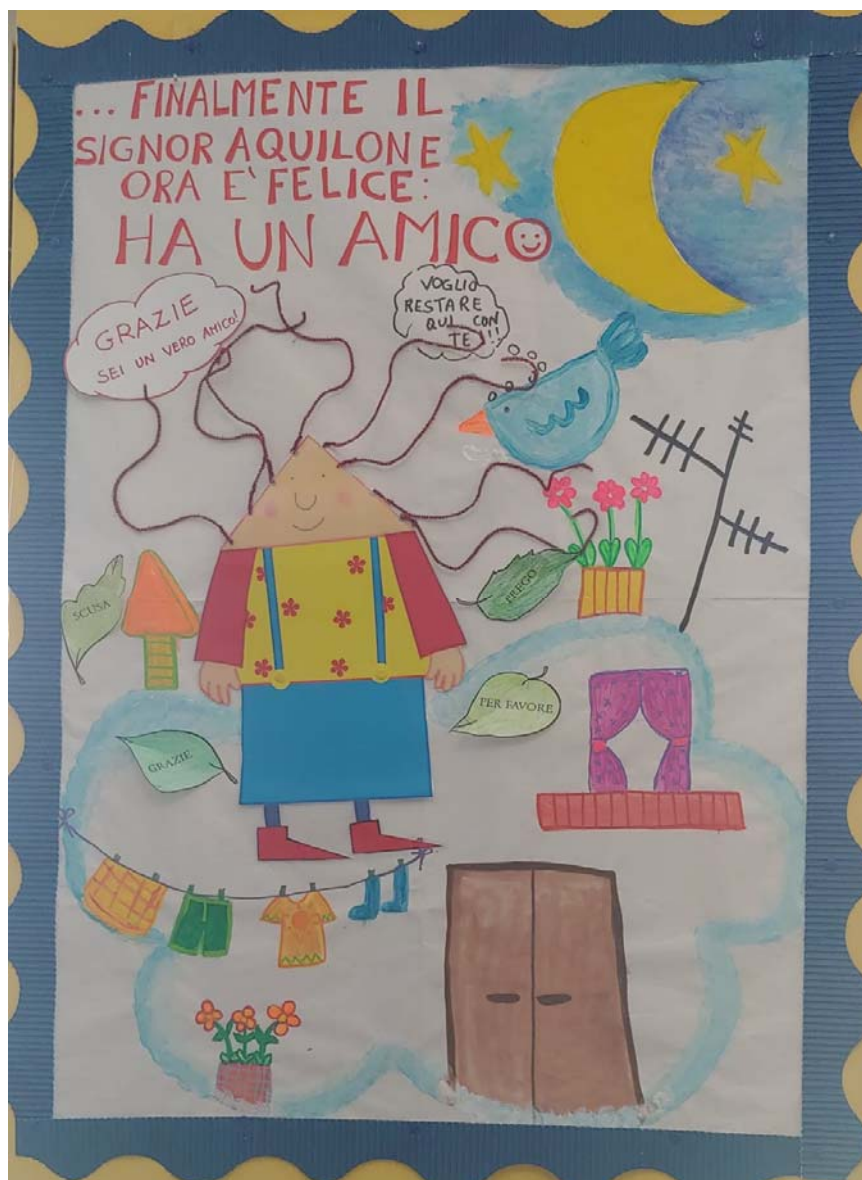 ... FINALMENTE IL
SIGNOR AQUILONE
ORA E' FELICE:
HA UN AMICO
GRAZIE
SEI UN VERO AMICO!
VOGLIO
RESTARE
QUI CON
TE!!!
SCUSA
PREGO
PER FAVORE
GRAZIE